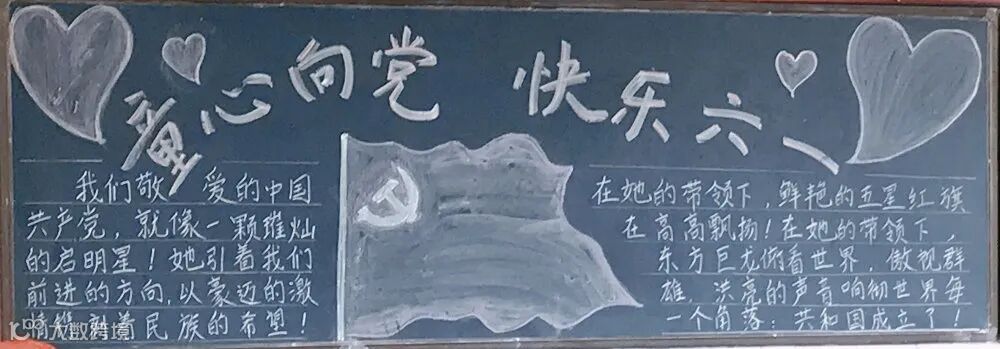 童心向党 快乐六一
我们敬 爱的中国
共产党,就像一颗璀灿
的启明星!她引着我们
前进的方向,以豪迈的激
情 着民族的希望!
在她的带领下,鲜艳的五星红旗
在高高飘扬!在她的带领下,
东方巨龙俯看世界,傲视群
雄,洪亮的声音响彻世界每
一个角落:共和国成立了!
大数跨境